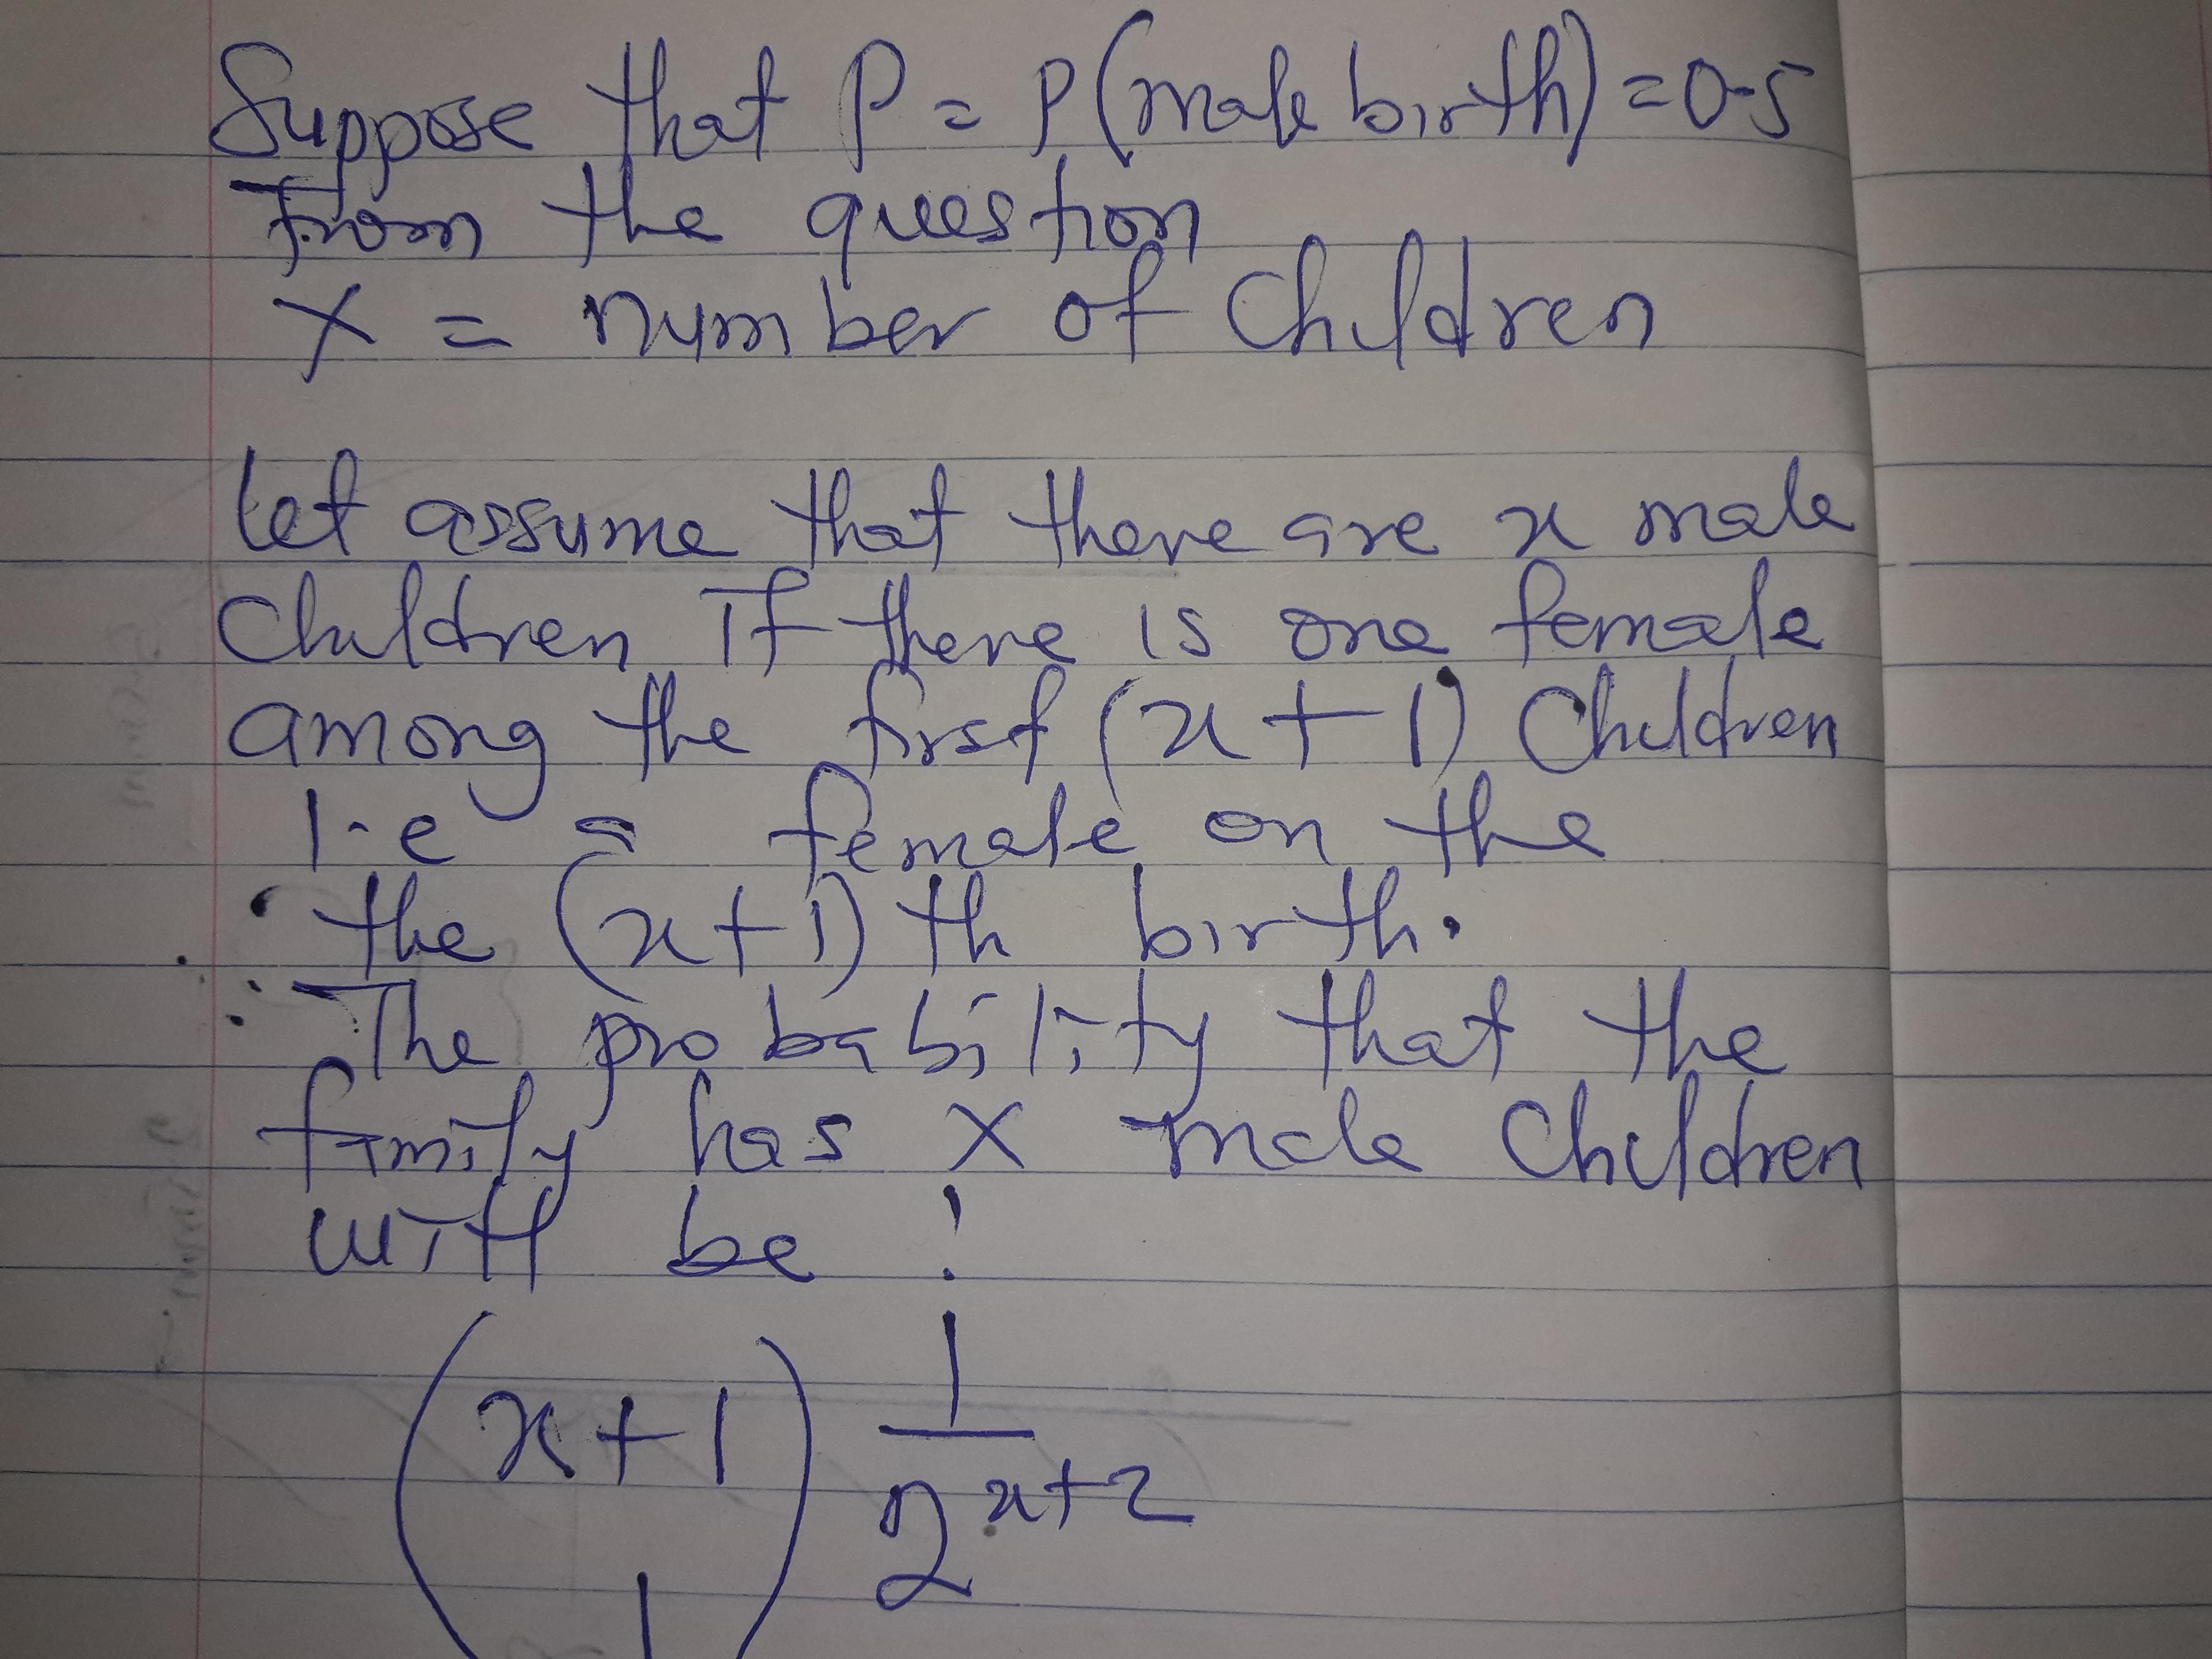 Suppose that P = P(male birth) = 0.5
From the question
X = number of Children
let assume that there are x male
Children if there is one female
among the first (x+1) Children
i.e a female on the
the (x+1)th birth.
∴ The probability that the
family has X male Children
will be :
(x+1) 1
2^{x+2}
1